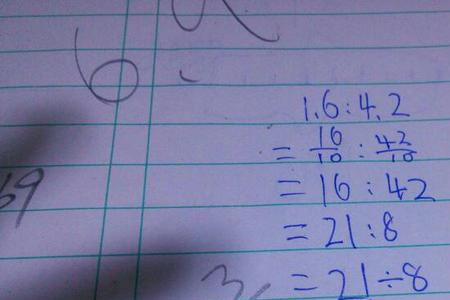 6
1.6:4.2
=16/10:42/10
=16:42
69
=21:8
=21÷8